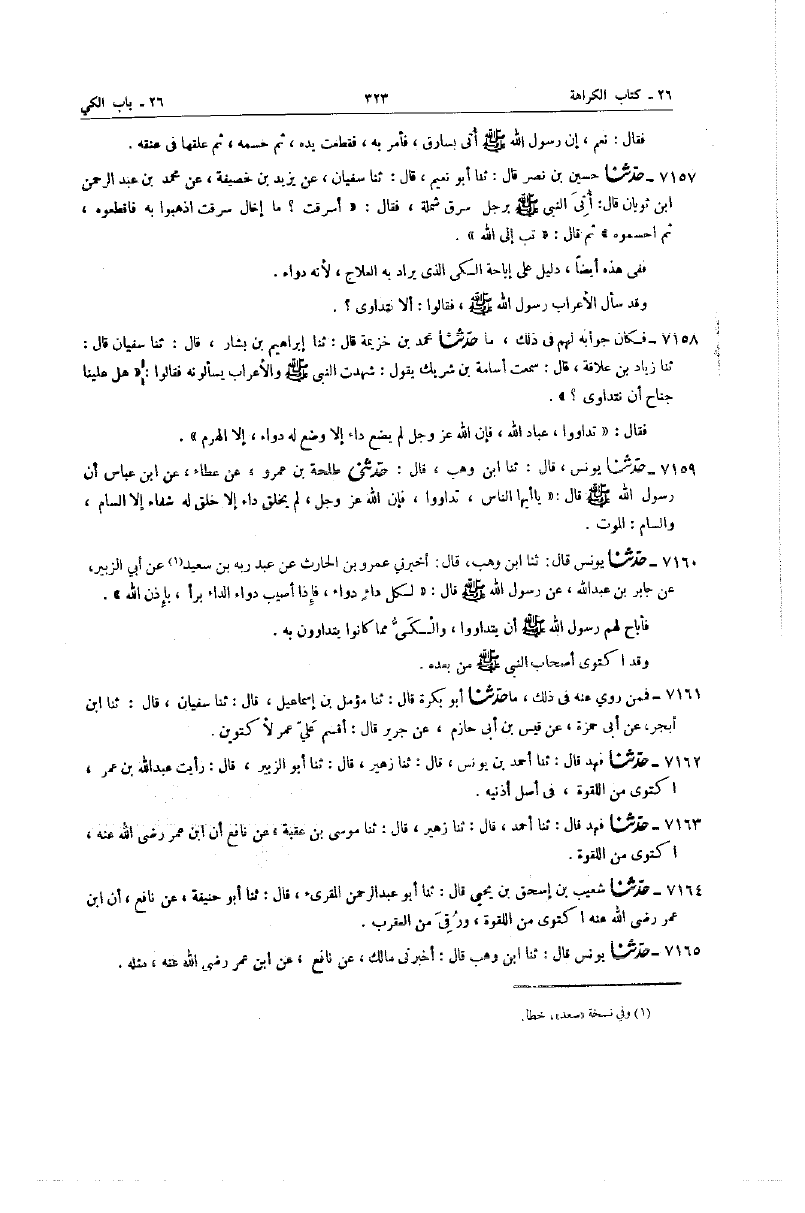 ٢٦ ـ كتاب الكراهة ٣٢٣ ٢٦ ـ باب الكي
فقال : نعم ، إن رسول الله ﷺ أتى بسارق ، فأمر به ، فقطعت يده ، ثم حسمه ، ثم علقها فى عنقه .
٧١٥٧ ـ حدّثنا حسين بن نصر قال : ثنا أبو نعيم ، قال : ثنا سفيان ، عن يزيد بن خصيفة ، عن محمد بن عبد الرحمن
ابن ثوبان قال: أُتِىَ النبي ﷺ برجل سرق شملة ، فقال : « أسرقت ؟ ما إخال سرقت اذهبوا به فاقطعوه ،
ثم احسموه » ثم قال : « تب إلى الله » .
ففى هذه أيضاً ، دليل على إباحة الـكى الذى يراد به العلاج ، لأنه دواء .
وقد سأل الأعراب رسول الله ﷺ ، فقالوا : ألا نتداوى ؟ .
٧١٥٨ ـ فـكان جوابه لهم فى ذلك ، ما حدّثنا محمد بن خزيمة قال : ثنا إبراهيم بن بشار ، قال : ثنا سفيان قال :
ثنا زياد بن علاقة ، قال : سمعت أسامة بن شريك يقول : شهدت النبي ﷺ والأعراب يسألونه فقالوا : « هل علينا
جناح أن نتداوى ؟ » .
فقال : « تداووا ، عباد الله ، فإن الله عز وجل لم يضع داء إلا وضع له دواء ، إلا الهرم » .
٧١٥٩ ـ حدّثنا يونس ، قال : ثنا ابن وهب ، قال : حدّثنى طلحة بن عمرو ، عن عطاء ، عن ابن عباس أن
رسول الله ﷺ قال : « ياأيها الناس ، تداووا ، فإن الله عز وجل ، لم يخلق داء إلا خلق له شفاء إلا السام ،
والسام : الموت .
٧١٦٠ ـ حدّثنا يونس قال: ثنا ابن وهب، قال: أخبرني عمرو بن الحارث عن عبد ربه بن سعيد(١) عن أبي الزبير،
عن جابر بن عبدالله ، عن رسول الله ﷺ قال : « لـكل داءٍ دواء ، فإذا أصيب دواء الداء برأ ، بإذن الله » .
فأباح لهم رسول الله ﷺ أن يتداووا ، والـكىُّ مما كانوا يتداوون به .
وقد اكتوى أصحاب النبي ﷺ من بعده .
٧١٦١ ـ فمن روي عنه فى ذلك ، ماحدّثنا أبو بكرة قال : ثنا مؤمل بن إسماعيل ، قال : ثنا سفيان ، قال : ثنا ابن
أبجر، عن أبى حمزة ، عن قيس بن أبى حازم ، عن جرير قال : أقسم عَليّ عمر لأكتوين .
٧١٦٢ ـ حدّثنا فهد قال : ثنا أحمد بن يونس ، قال : ثنا زهير ، قال : ثنا أبو الزبير ، قال : رأيت عبدالله بن عمر ،
اكتوى من اللقوة ، فى أصل أذنيه .
٧١٦٣ ـ حدّثنا فهد قال : ثنا أحمد ، قال : ثنا زهير ، قال : ثنا موسى بن عقبة ، عن نافع أن ابن عمر رضى الله عنه ،
اكتوى من اللقوة .
٧١٦٤ ـ حدّثنا شعيب بن إسحق بن يحيى قال : ثنا أبو عبدالرحمن المقرىء ، قال : ثنا أبو حنيفة ، عن نافع ، أن ابن
عمر رضى الله عنه اكتوى من اللقوة ، ورُقِىَ من العقرب .
٧١٦٥ ـ حدّثنا يونس قال : ثنا ابن وهب قال : أخبرنى مالك ، عن نافع ، عن ابن عمر رضى الله عنه ، مثله .
(١) وفي نسخة «صعد»، خطا.